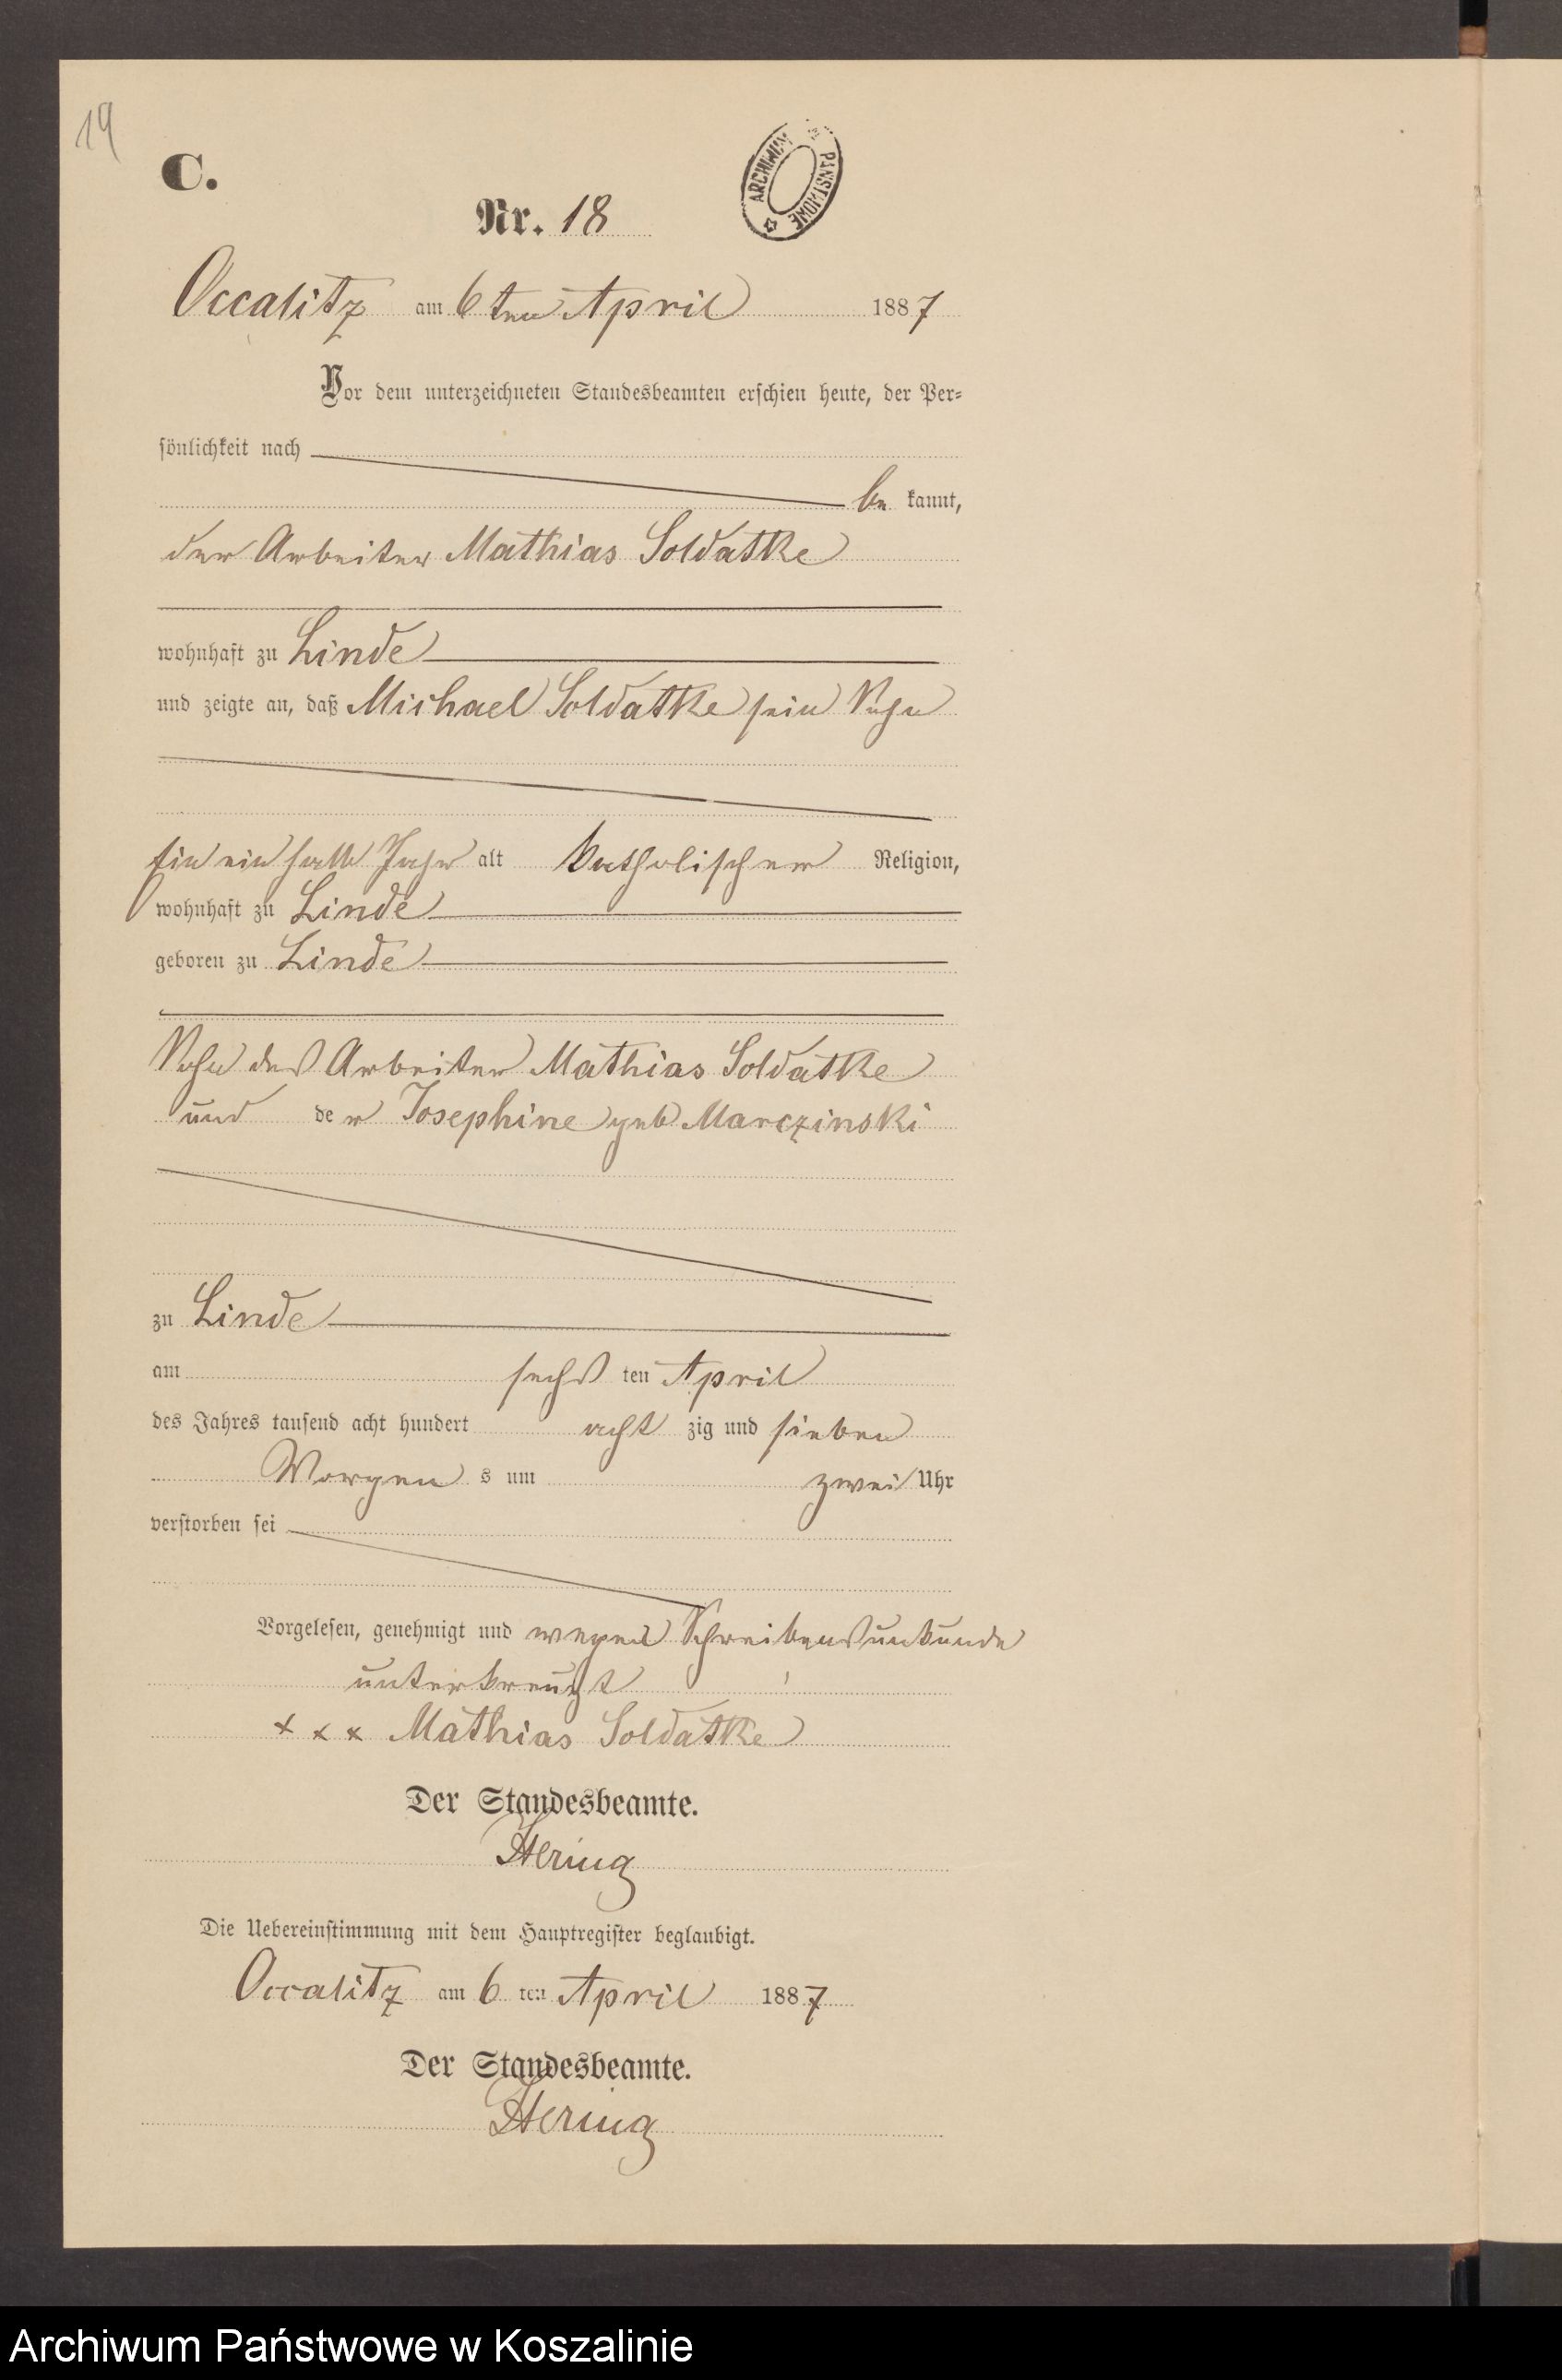 19
C.
ARCHIWUM PAŃSTWOWE
Nr. 18
Occalitz am 6ten April 1887
Vor dem unterzeichneten Standesbeamten erschien heute, der Per-
sönlichkeit nach
be kannt,
der Arbeiter Mathias Soldatke
wohnhaft zu Linde
und zeigte an, daß Michael Soldatke sein Sohn
Ein ein halb Jahr alt katholischer Religion,
wohnhaft zu Linde
geboren zu Linde
Sohn des Arbeiter Mathias Soldatke
und der Josephine geb Marczinski
zu Linde
am sechs ten April
des Jahres tausend acht hundert acht zig und sieben
Morgen s um zwei Uhr
verstorben sei
Vorgelesen, genehmigt und wegen Schreibensunkunde
unterkreuzt
x x x Mathias Soldatke
Der Standesbeamte.
Hering
Die Uebereinstimmung mit dem Hauptregister beglaubigt.
Occalitz am 6 ten April 1887
Der Standesbeamte.
Hering
Archiwum Państwowe w Koszalinie